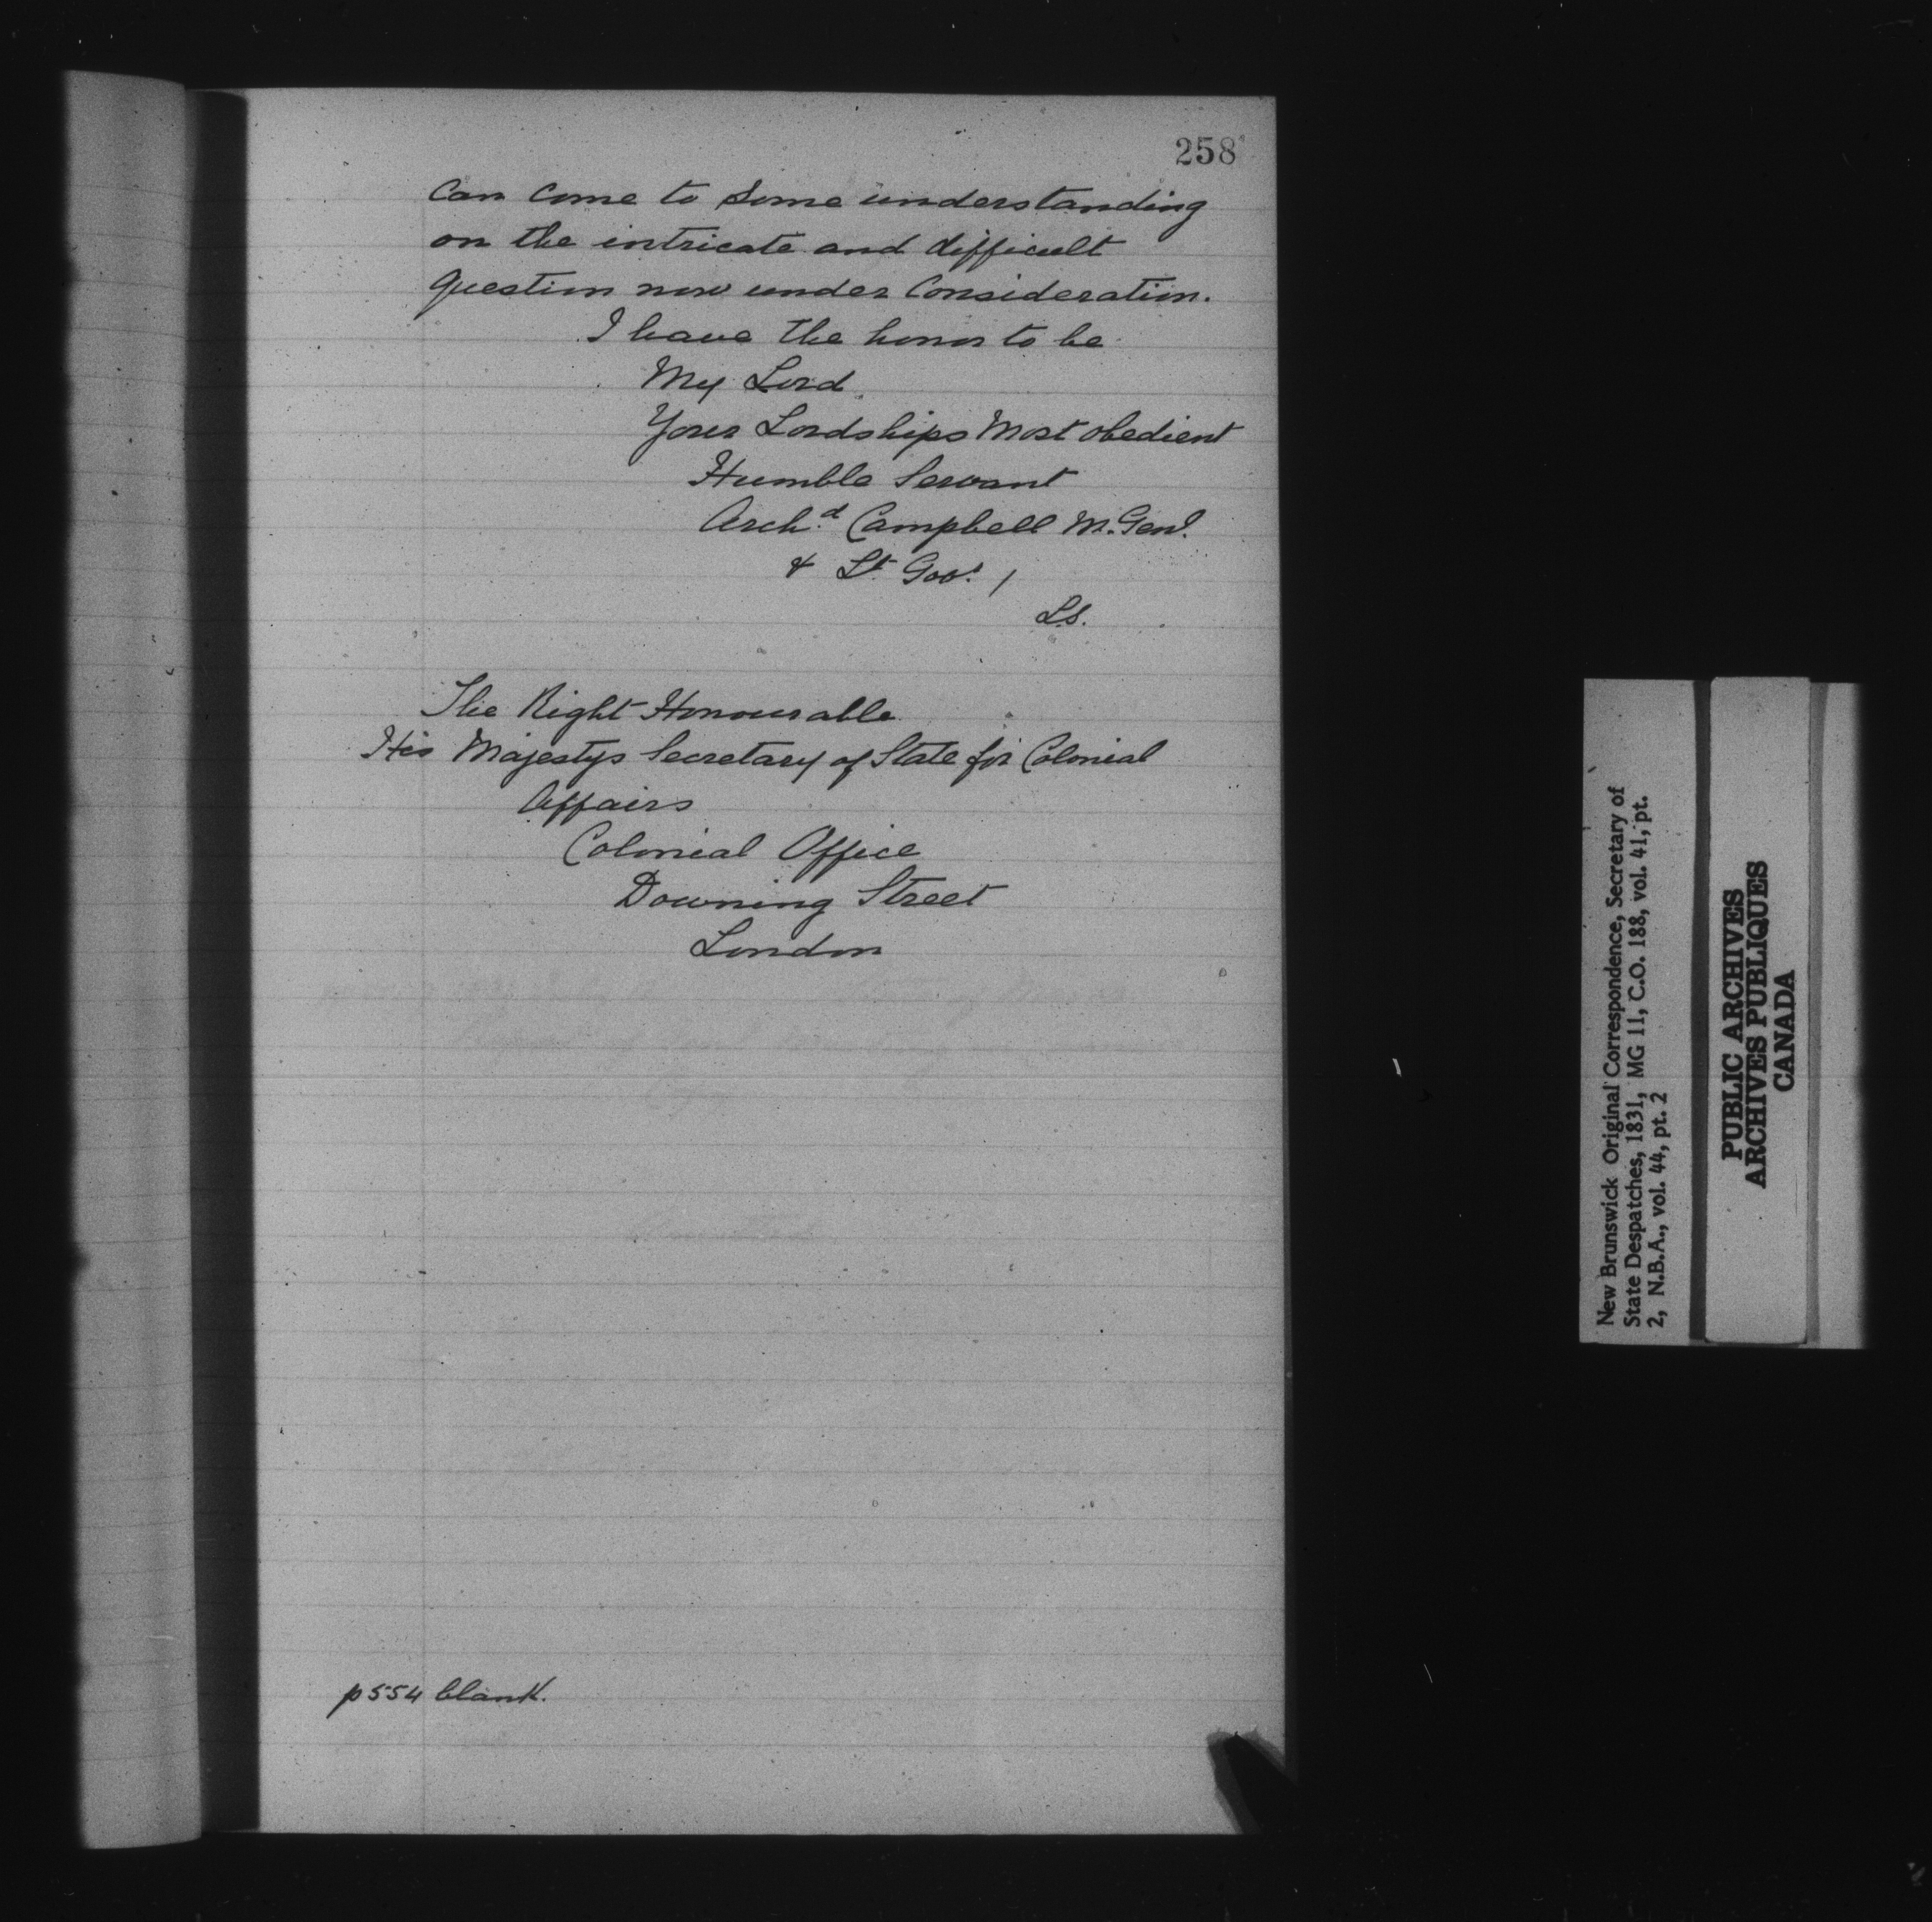 258
Can Come to some understanding
on the intricate and difficult
question now under Consideration.
I have the honor to be
My Lord
Your Lordships Most obedient
Humble Servant
Archd. Campbell M. Genl.
& Lt. Govr. /
L.S.
The Right Honourable
His Majestys Secretary of State for Colonial
Affairs
Colonial Office
Downing Street
London
p 554 blank.
New Brunswick Original Correspondence, Secretary of
State Despatches, 1831, MG 11, C.O. 188, vol. 41, pt.
2, N.B.A., vol. 44, pt. 2
PUBLIC ARCHIVES
ARCHIVES PUBLIQUES
CANADA